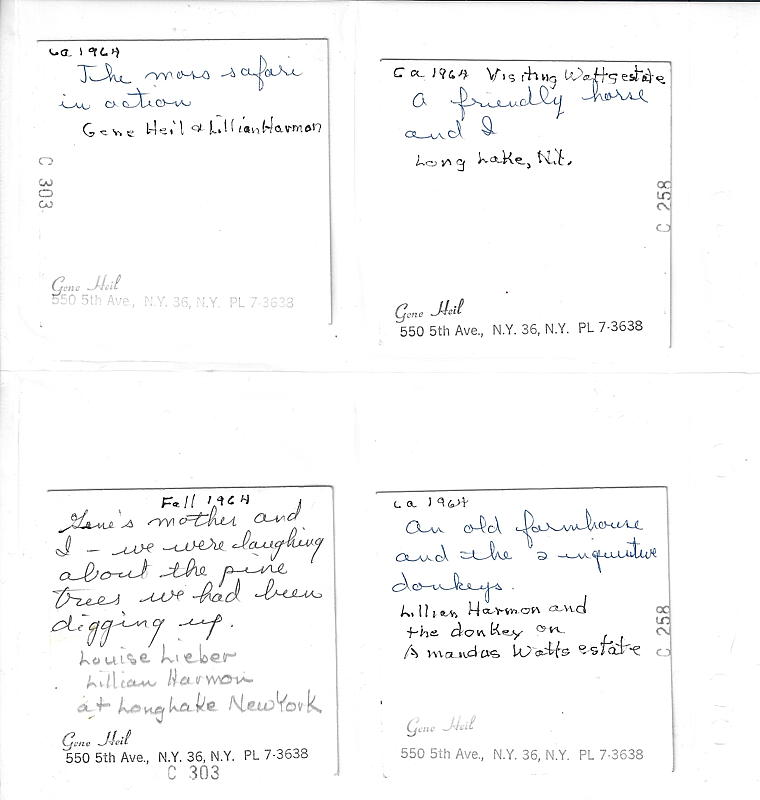 ca 1964
The moss safari
in action
Gene Heil & Lillian Harmon
C 303
Gene Heil
550 5th Ave., N.Y. 36, N.Y. PL 7-3638
Ca 1964 Visiting Watts estate
a friendly horse
and I
Long Lake, N.Y.
C 258
Gene Heil
550 5th Ave., N.Y. 36, N.Y. PL 7-3638
Fall 1964
Gene's mother and
I - we were laughing
about the pine
trees we had been
digging up.
Louise Lieber
Lillian Harmon
at Long Lake New York
Gene Heil
550 5th Ave., N.Y. 36, N.Y. PL 7-3638
C 303
ca 1964
an old farmhouse
and the 2 inquisitive
donkeys.
Lillian Harmon and
the donkey on
Amandas Watts estate
C 258
Gene Heil
550 5th Ave., N.Y. 36, N.Y. PL 7-3638